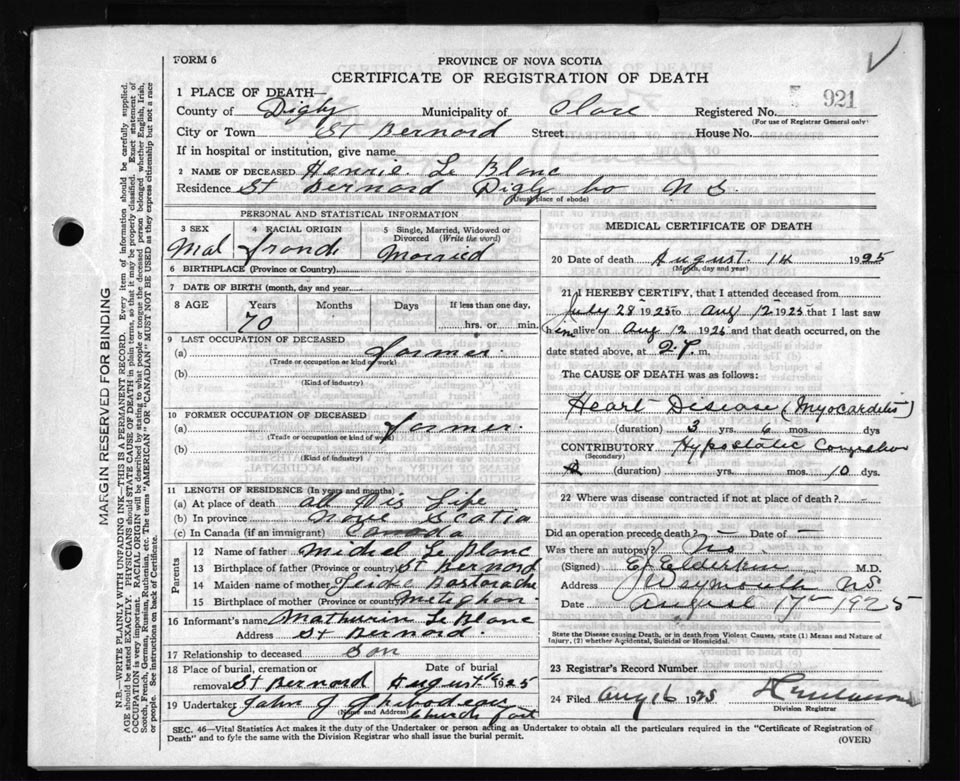 FORM 6
PROVINCE OF NOVA SCOTIA
CERTIFICATE OF REGISTRATION OF DEATH
921
1 PLACE OF DEATH—
County of Digby Municipality of Clare Registered No.
(For use of Registrar General only)
City or Town St Bernard Street House No.
If in hospital or institution, give name
2 NAME OF DECEASED Hennie Le Blanc
Residence St Bernard Digby Co N S.
(Usual place of abode)
PERSONAL AND STATISTICAL INFORMATION
3 SEX 4 RACIAL ORIGIN 5 Single, Married, Widowed or Divorced (Write the word)
Mal Married
6 BIRTHPLACE (Province or Country)
7 DATE OF BIRTH (month, day and year)
8 AGE Years Months Days If less than one day,
70 hrs. or min.
9 LAST OCCUPATION OF DECEASED
(a) farmer.
(Trade or occupation or kind of work)
(b)
(Kind of industry)
10 FORMER OCCUPATION OF DECEASED
(a) farmer.
(Trade or occupation or kind of work)
(b)
(Kind of industry)
11 LENGTH OF RESIDENCE (In years and months)
(a) At place of death all His Life
(b) In province Nove Scotia
(c) In Canada (if an immigrant) Canada
Parents
12 Name of father Michel Le Blanc
13 Birthplace of father (Province or country) St Bernard
14 Maiden name of mother
15 Birthplace of mother (Province or country) Meteghan
16 Informant's name Mathurin Le Blanc
Address St Bernard.
17 Relationship to deceased Son
18 Place of burial, cremation or removal St Bernard
Date of burial August 16 1925
19 Undertaker John J Thibodeau
(Name and Address) Church Point
MEDICAL CERTIFICATE OF DEATH
20 Date of death August. 14 1925
(Month, day and year)
21 I HEREBY CERTIFY, that I attended deceased from
July 28 1925 to Aug 12 1925 that I last saw
him alive on Aug 12 1925 and that death occurred, on
date stated above, at 2 P. m.
The CAUSE OF DEATH was as follows:
Heart Disease (Myocarditis)
(duration) 3 yrs. 6 mos. dys
CONTRIBUTORY Hypostatic Congestion
(Secondary)
(duration) yrs. mos. 10 dys.
22 Where was disease contracted if not at place of death?
Did an operation precede death? — Date of —
Was there an autopsy? No
(Signed) E Elderkin M.D.
Address Weymouth NS
Date August 17th 1925
State the Disease causing Death, or in death from Violent Causes, state (1) Means and Nature of Injury, (2) whether Accidental, Suicidal or Homicidal.
23 Registrar's Record Number
24 Filed Aug 16 1925
Division Registrar
SEC. 46—Vital Statistics Act makes it the duty of the Undertaker or person acting as Undertaker to obtain all the particulars required in the "Certificate of Registration of
Death" and to fyle the same with the Division Registrar who shall issue the burial permit.
(OVER)
MARGIN RESERVED FOR BINDING
N.B.—WRITE PLAINLY WITH UNFADING INK—THIS IS A PERMANENT RECORD. Every item of information should be carefully supplied.
AGE should be stated EXACTLY. PHYSICIANS should STATE CAUSE OF DEATH in plain terms, so that it may be properly classified. Exact statement of
OCCUPATION is very important. RACIAL ORIGIN will be described by stating to what people or tongue the deceased person belonged whether English, Irish,
Scotch, French, German, Russian, Ruthenian, etc. The terms "AMERICAN" OR "CANADIAN" MUST NOT BE USED as they express citizenship but not a race
or people. See instructions on back of Certificate.